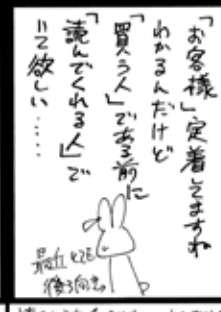 「お客様」定着してますね
わかるんだけど
「買う人」である前に
「読んでくれる人」で
いて欲しい……
最近とても
後ろ向き。